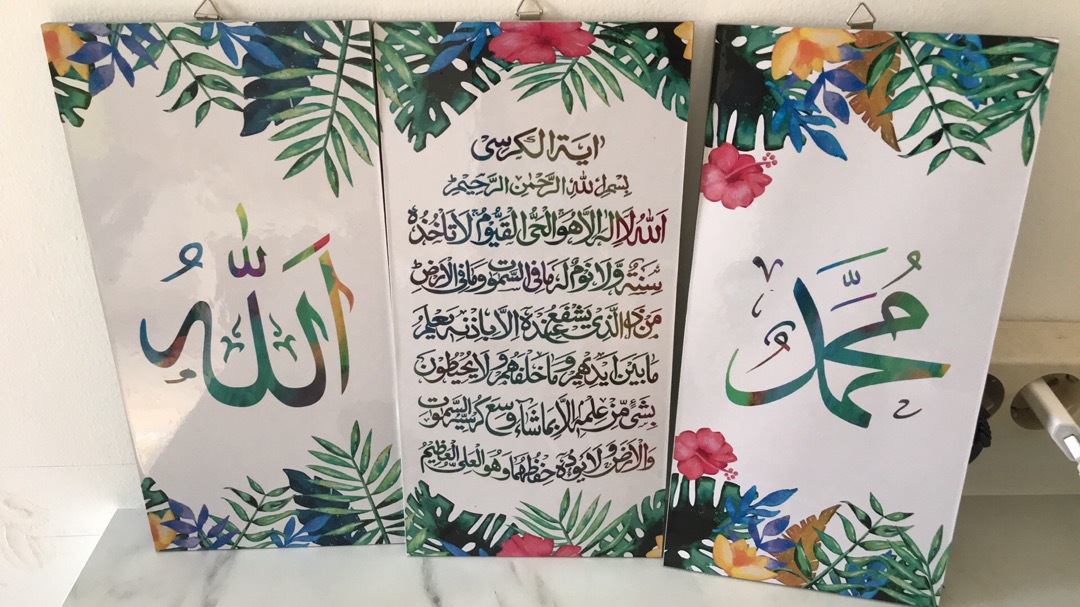 اللّٰه
اٰية الكرسى
بسم الله الرّحمٰن الرّحيم
اللهُ لَا اِلٰهَ اِلَّا هُوَ الْحَىُّ الْقَيُّوْمُ لَا تَأْخُذُهٗ
سِنَةٌ وَّلَا نَوْمٌ لَهٗ مَا فِى السَّمٰوٰتِ وَمَا فِى الْاَرْضِ
مَنْ ذَا الَّذِىْ يَشْفَعُ عِنْدَهٗ اِلَّا بِاِذْنِهٖ يَعْلَمُ
مَا بَيْنَ اَيْدِيْهِمْ وَمَا خَلْفَهُمْ وَلَا يُحِيْطُوْنَ
بِشَىْءٍ مِّنْ عِلْمِهٖ اِلَّا بِمَا شَاءَ وَسِعَ كُرْسِيُّهُ السَّمٰوٰتِ
وَالْاَرْضَ وَلَا يَؤُدُهٗ حِفْظُهُمَا وَهُوَ الْعَلِىُّ الْعَظِيْمُ
مُحَمَّد